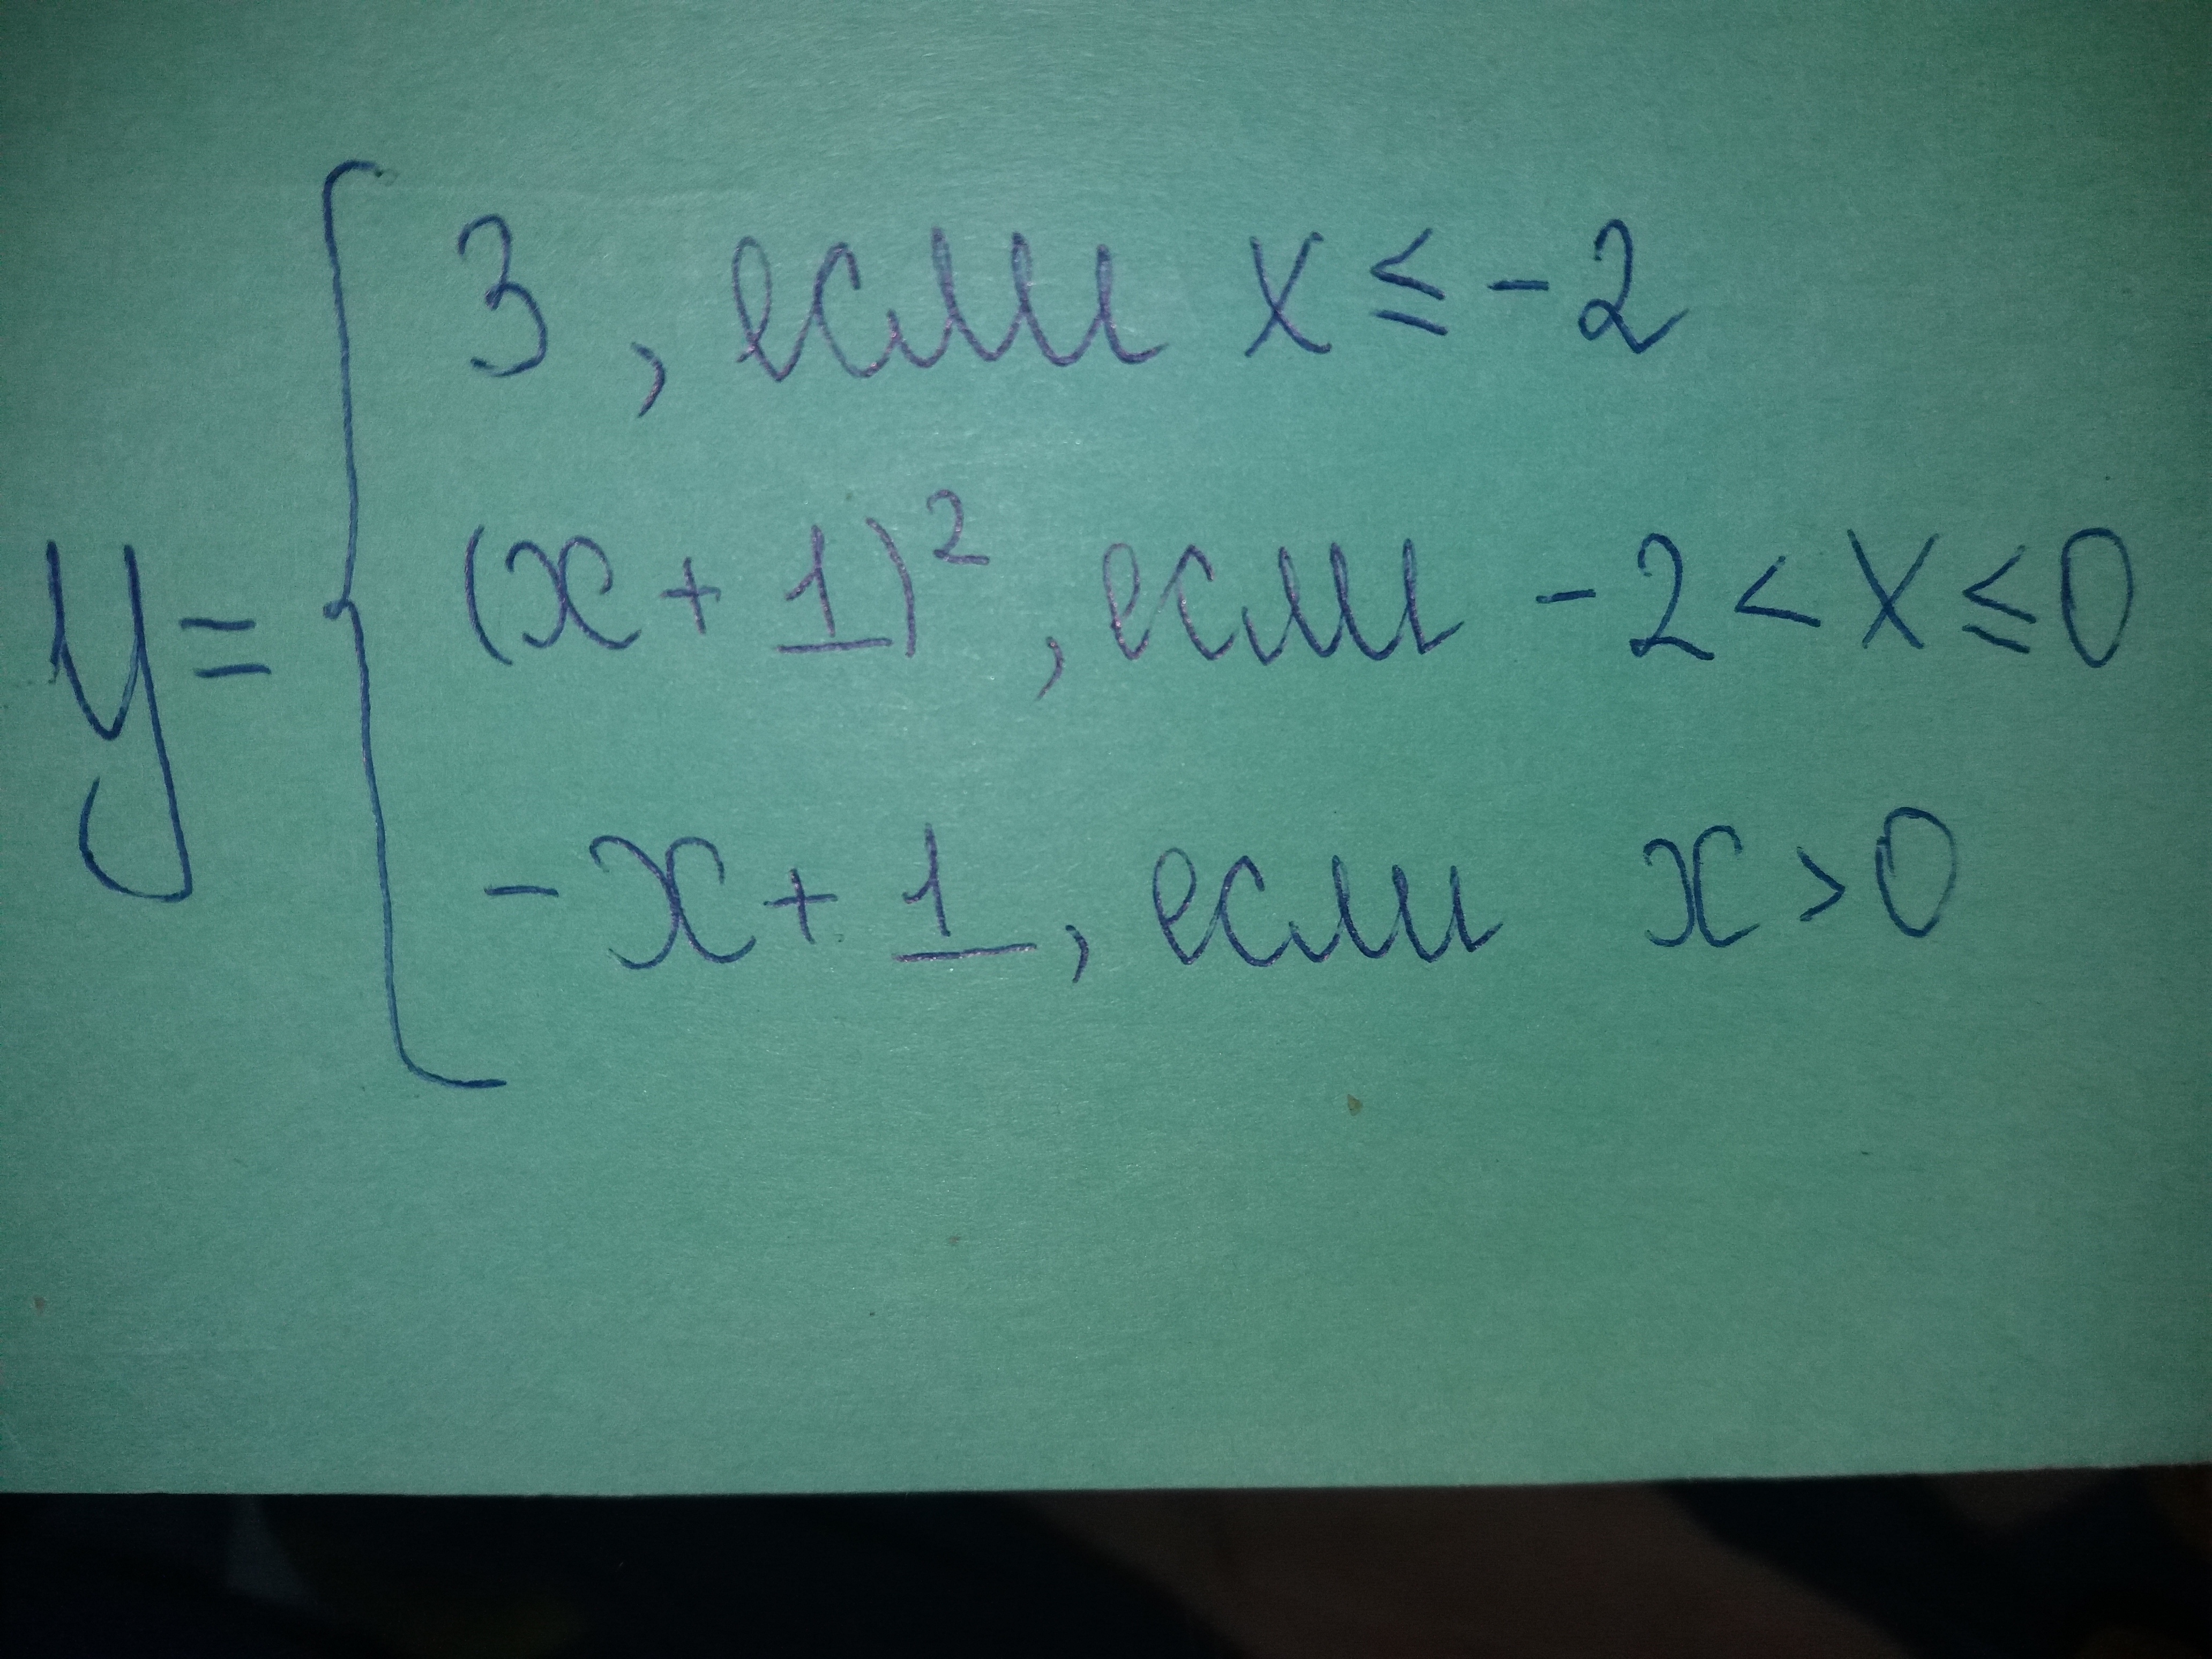 3, если x ≤ -2
y = { (x + 1)², если -2 < x ≤ 0
-x + 1, если x > 0